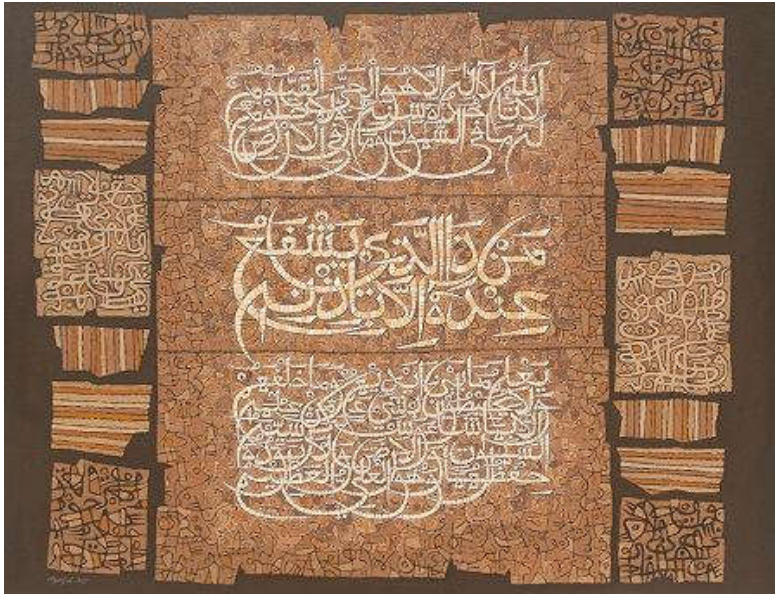 الله لا إله إلا هو الحي القيوم
لا تأخذه سنة ولا نوم
له ما في السموات وما في الأرض
من ذا الذي يشفع
عنده إلا بإذنه
يعلم ما بين أيديهم وما خلفهم
ولا يحيطون بشيء من علمه
إلا بما شاء وسع كرسيه
السموات والأرض ولا يؤده
حفظهما وهو العلي العظيم